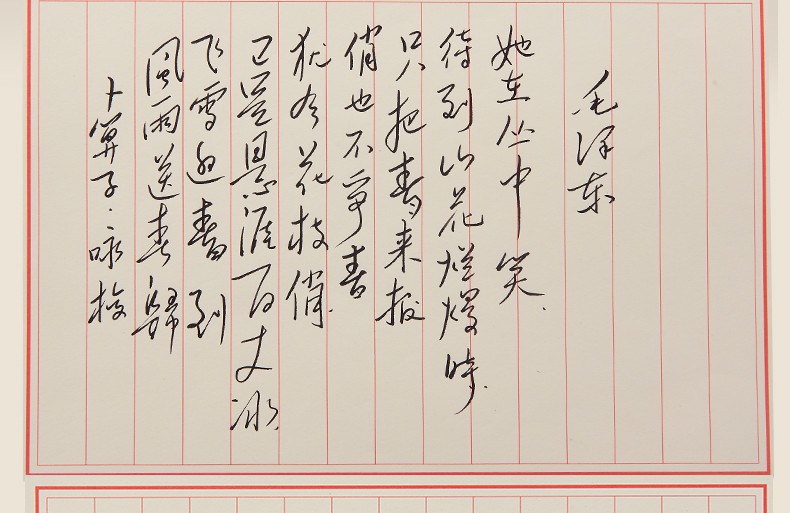 卜算子·咏梅
風雨送春歸
飞雪迎春到
已是悬涯百丈冰.
犹有花枝俏.
俏也不争春
只把春来报
待到山花烂熳時.
她在丛中笑.
毛泽东